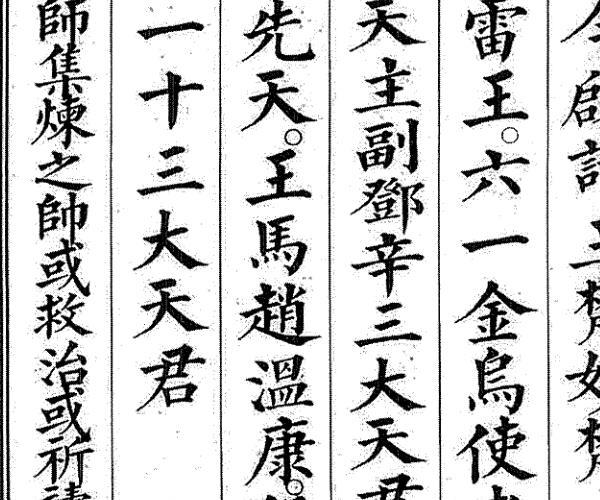 雷王。六一金烏使
天主副鄧辛三大天君
先天。王馬趙溫康。
一十三大天君
師集煉之帥或救治或祈請